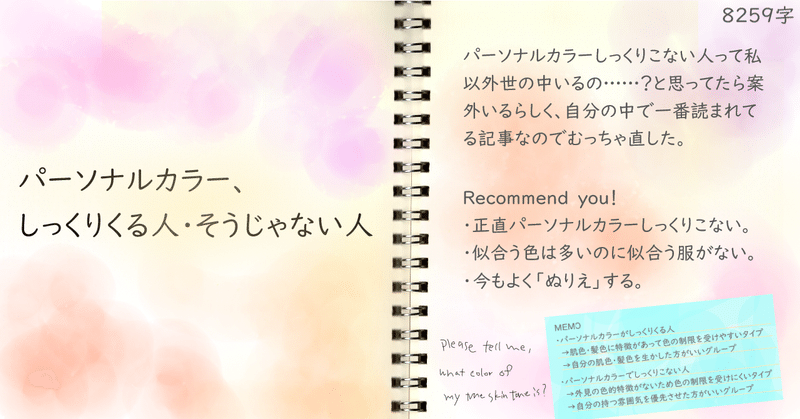 パーソナルカラー、
しっくりくる人・そうじゃない人
8259字
パーソナルカラーしっくりこない人って私
以外世の中いるの……?と思ってたら案
外いるらしく、自分の中で一番読まれて
る記事なのでむっちゃ直した。
Recommend you!
・正直パーソナルカラーしっくりこない。
・似合う色は多いのに似合う服がない。
・今もよく「ぬりえ」する。
please tell me,
what color of
my true skin tone is?
MEMO
・パーソナルカラーがしっくりくる人
→肌色・髪色に特徴があって色の制限を受けやすいタイプ
→自分の肌色・髪色を生かした方がいいグループ
・パーソナルカラーでしっくりこない人
→外見の色的特徴がないため色の制限を受けにくいタイプ
→自分の持つ雰囲気を優先させた方がいいグループ